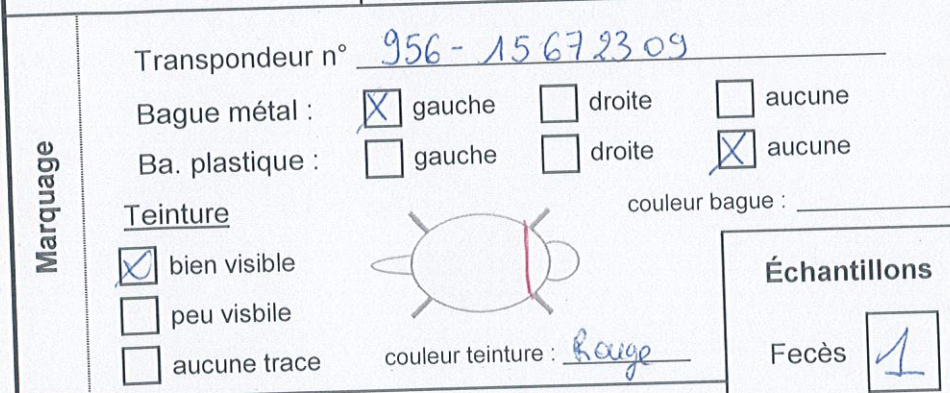 Marquage
Transpondeur n° 956-15672309
Bague métal : ☒ gauche ☐ droite ☐ aucune
Ba. plastique : ☐ gauche ☐ droite ☒ aucune
Teinture couleur bague :
☒ bien visible
☐ peu visbile
☐ aucune trace couleur teinture : Rouge
Échantillons
Fecès 1